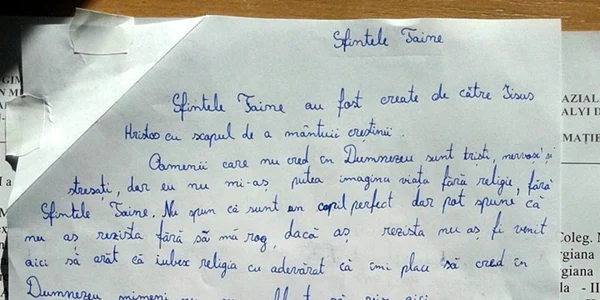 Sfintele Taine
Sfintele Taine au fost create de către Iisus
Hristos cu scopul de a mântuii creștinii.
Oamenii care nu cred în Dumnezeu sunt triști, nervoși și
stresați, dar eu nu mi-aș putea imagina viața fără religie, fără
Sfintele Taine. Nu spun că sunt un copil perfect dar pot spune că
nu aș rezista fără să mă rog, dacă aș rezista nu aș fi venit
aici să arăt că iubex religia cu adevărat că îmi place să cred în
Dumnezeu nimeni nu
AZIAL
ALYI D
MAȚIE
Coleg. N
rgiana
rgiana
la - II